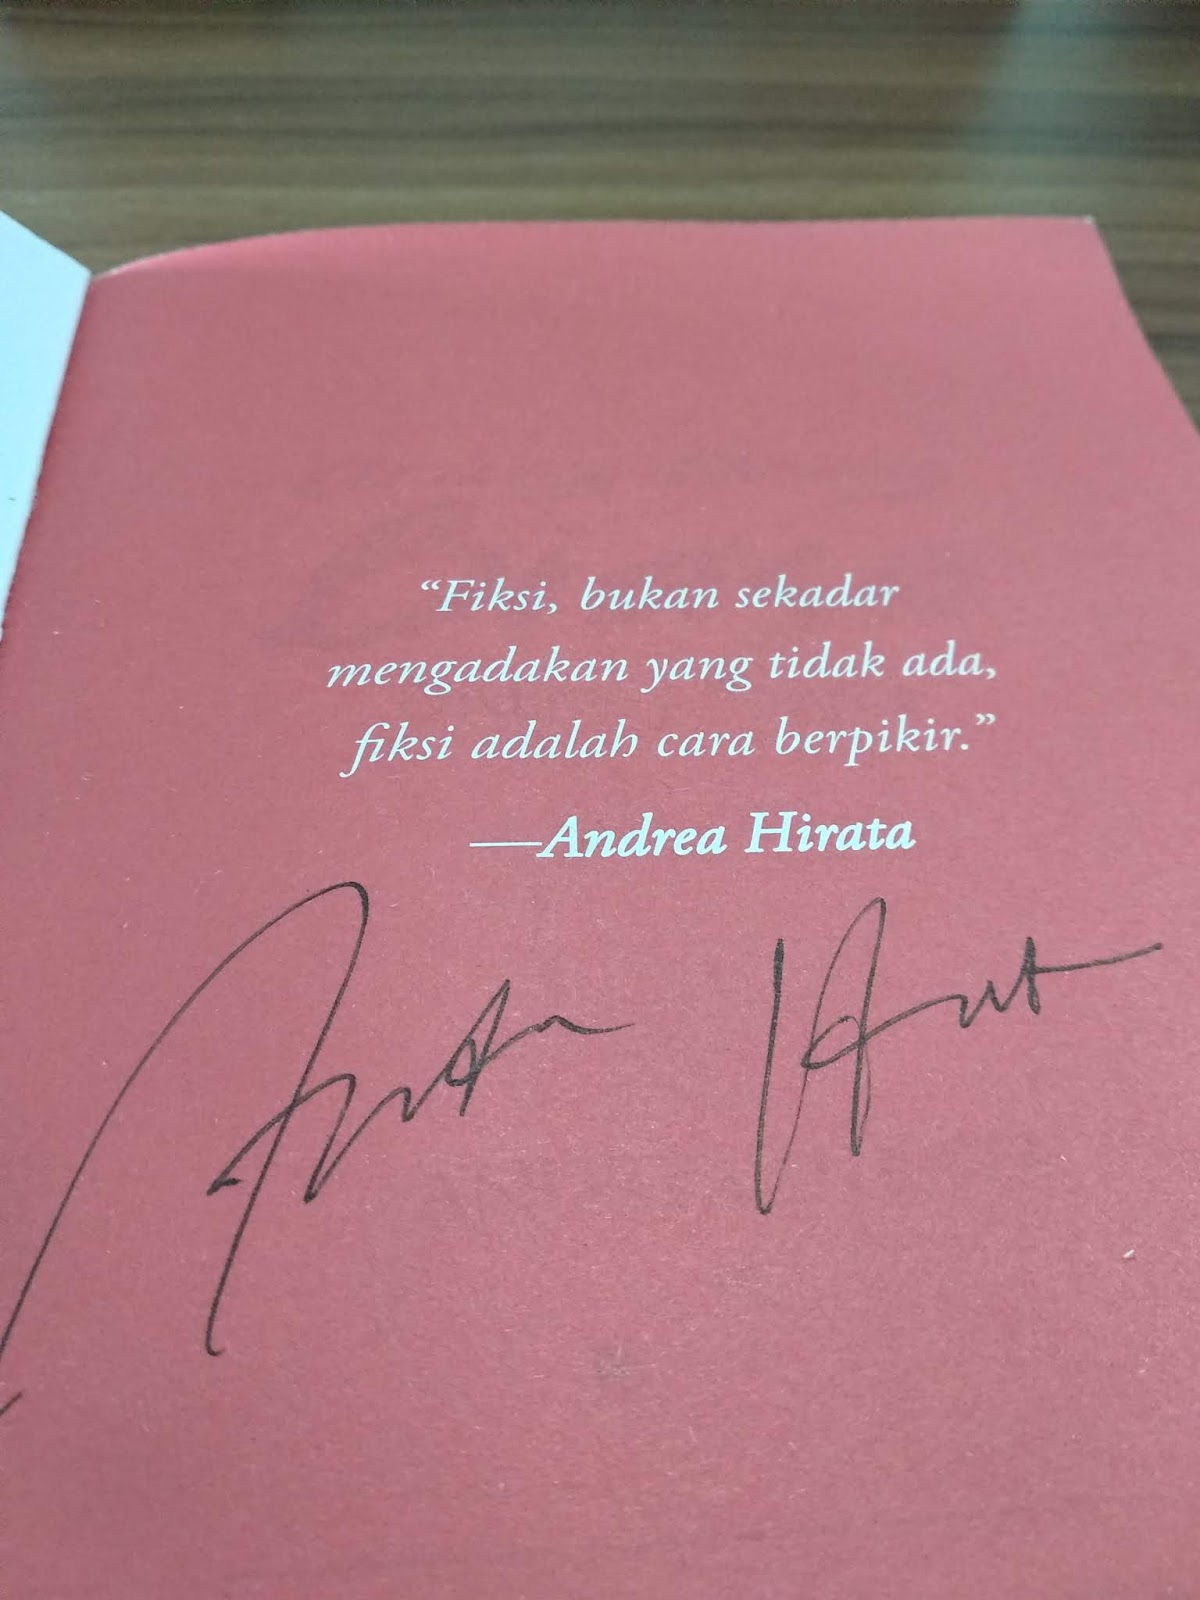 “Fiksi, bukan sekadar
mengadakan yang tidak ada,
fiksi adalah cara berpikir.”
—Andrea Hirata